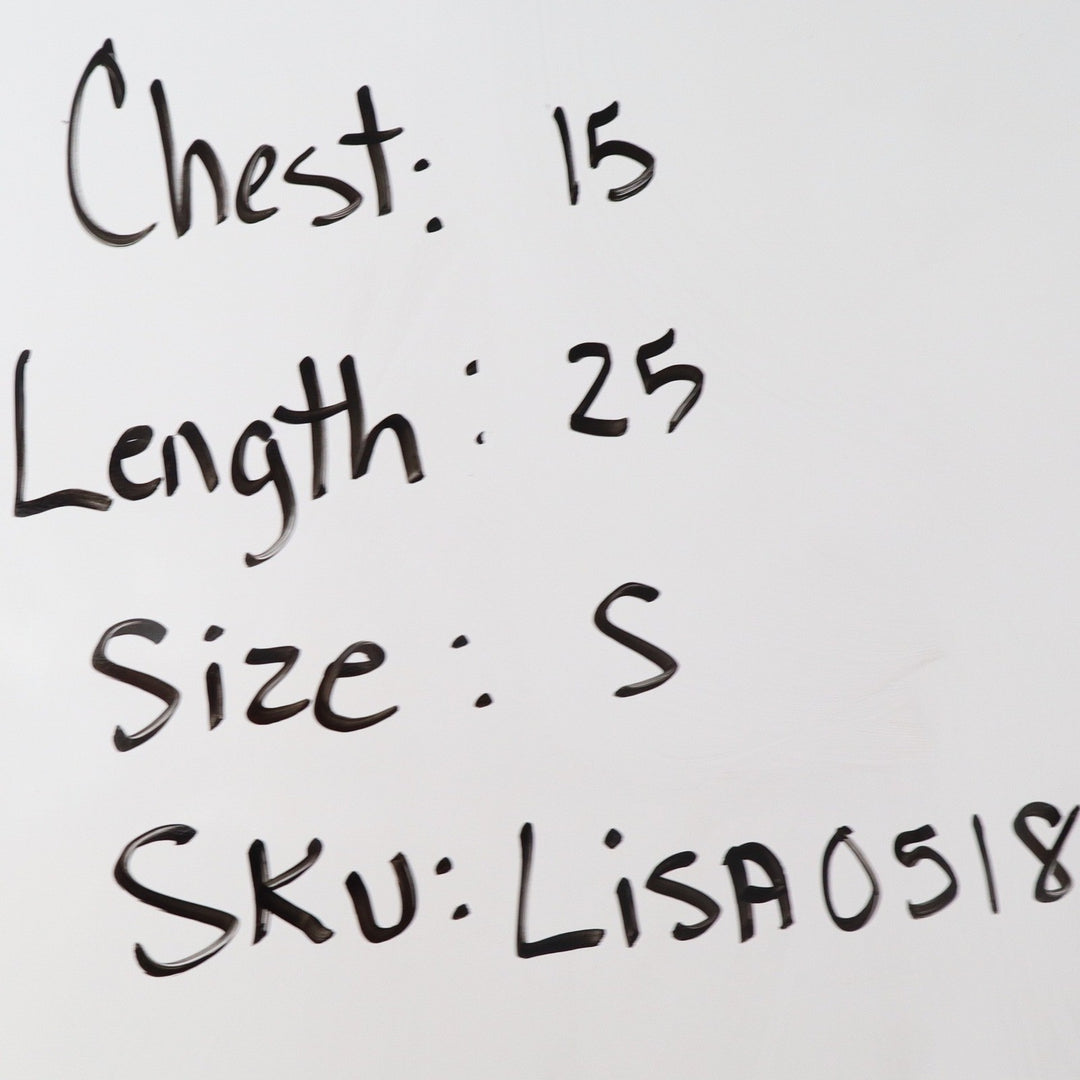 Chest: 15
Length: 25
Size: S
SKU: LiSA0518